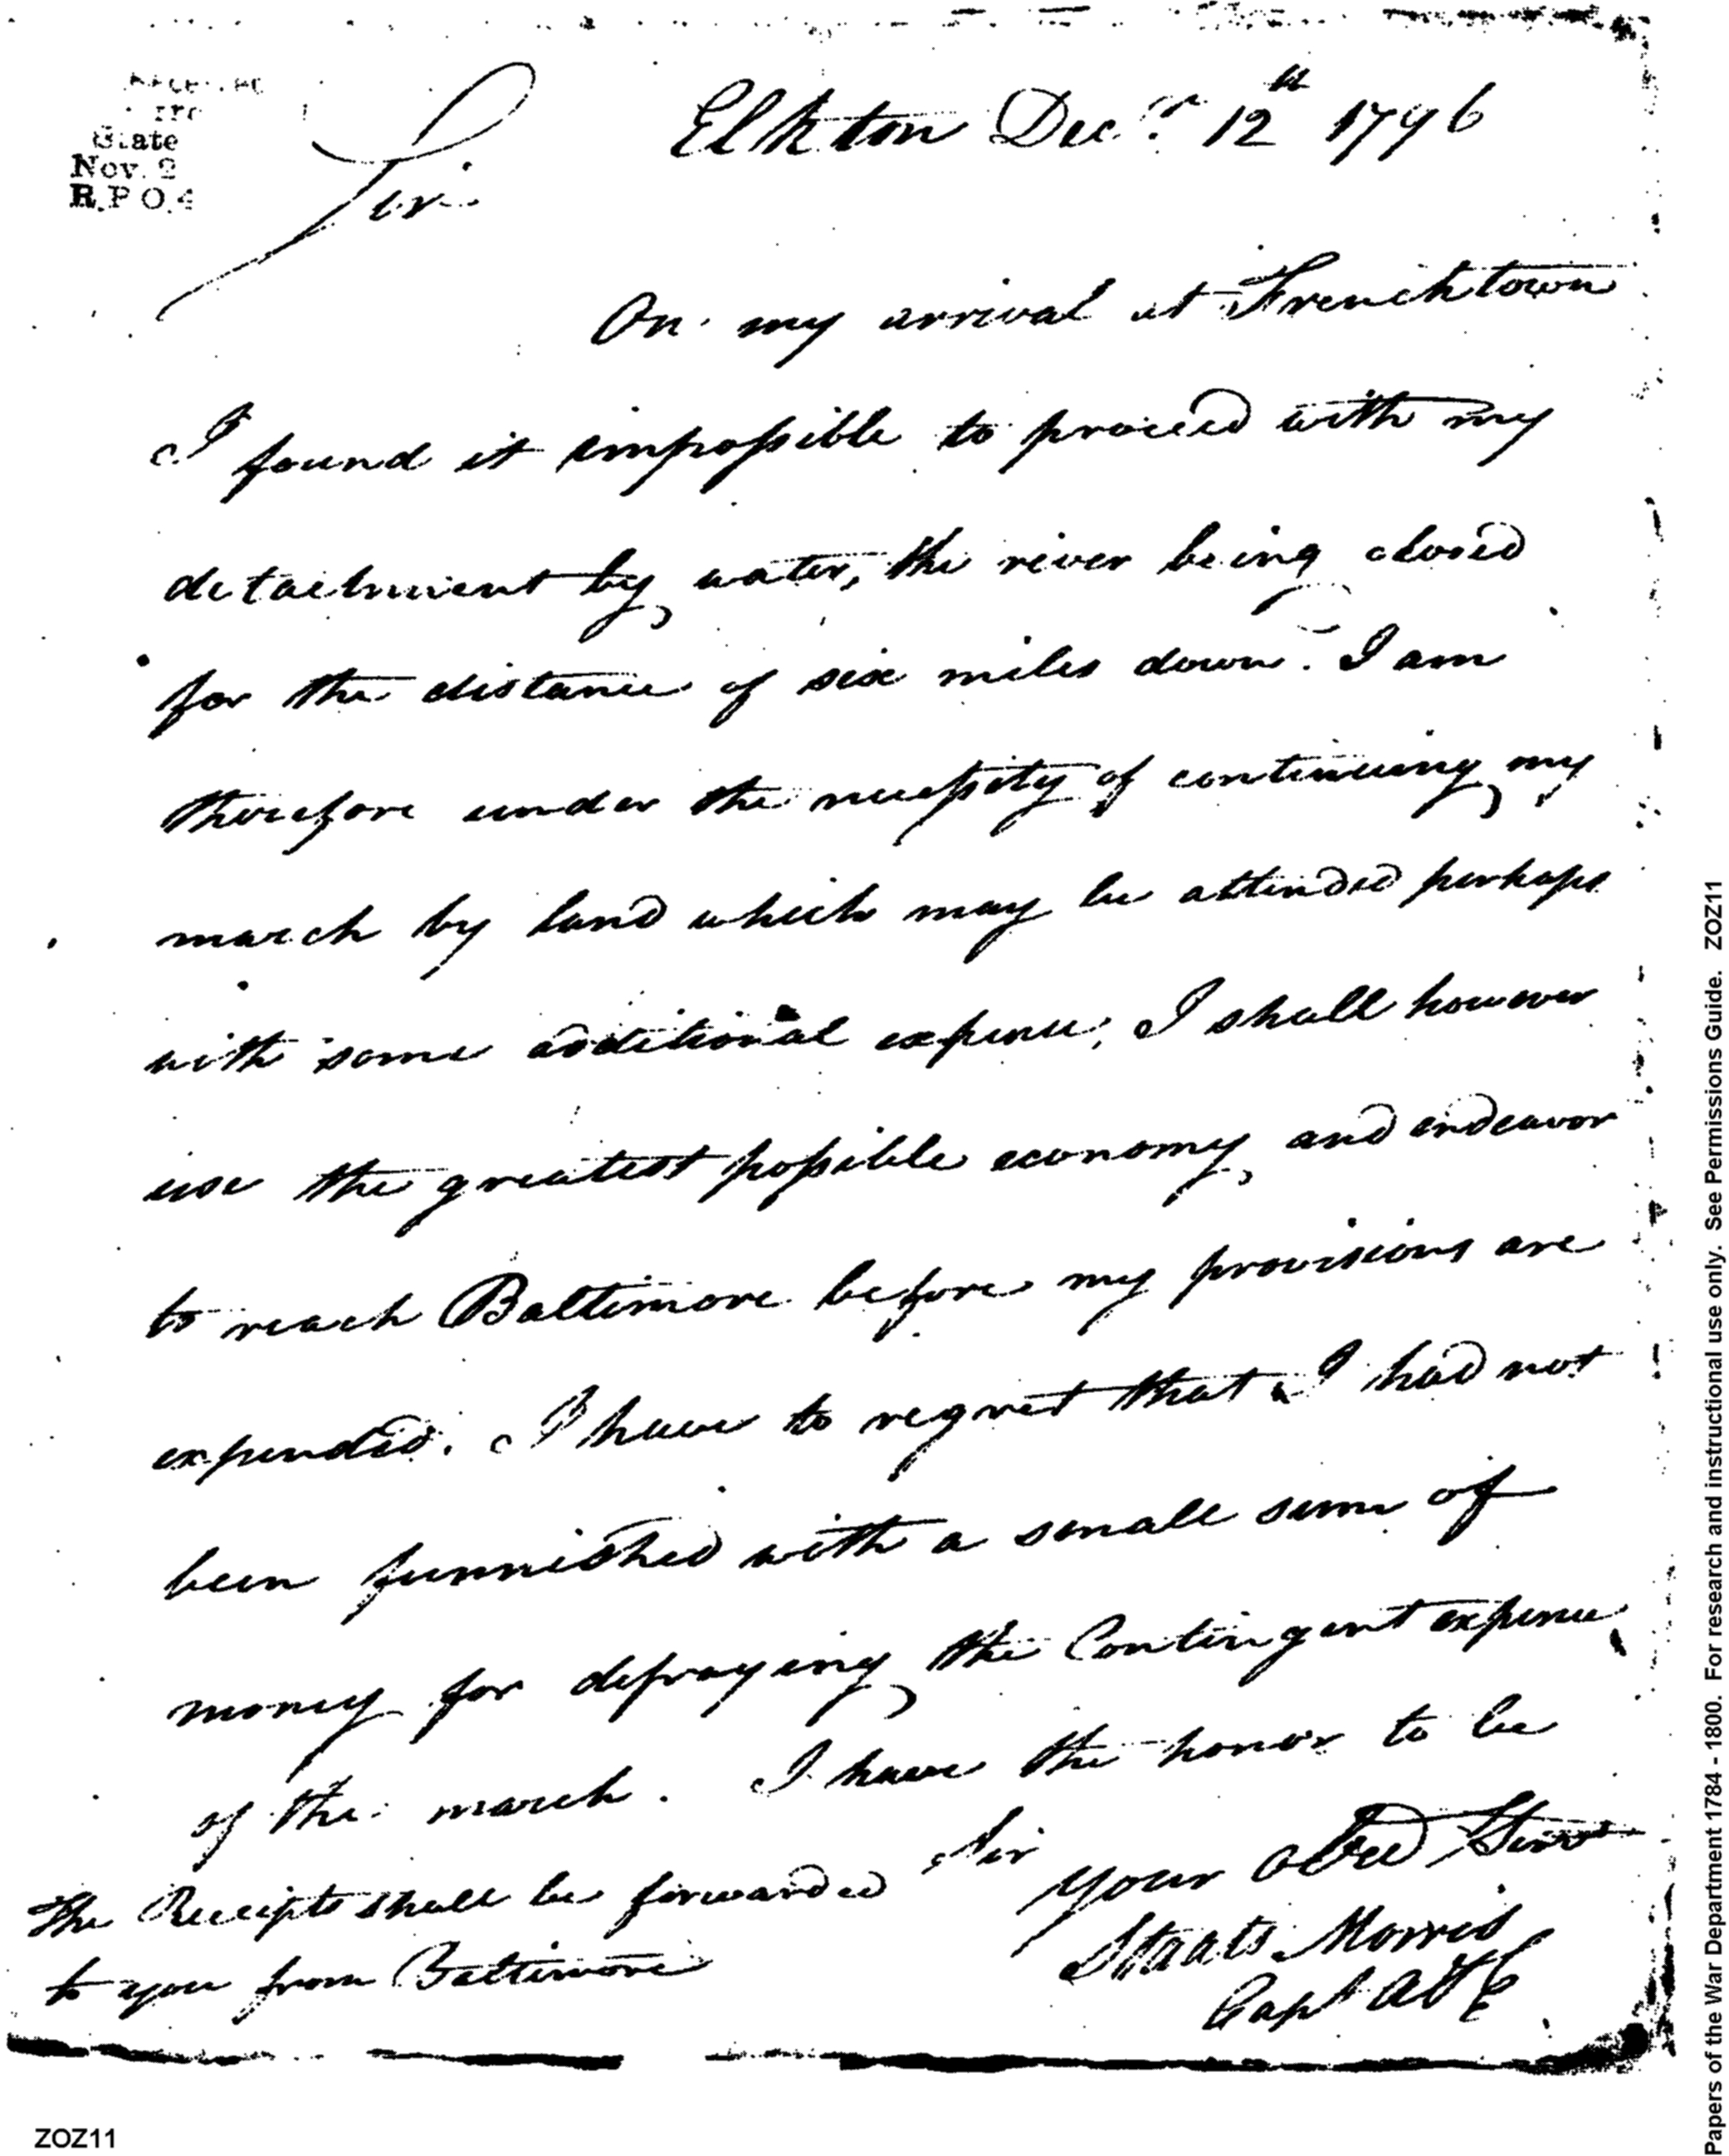 Elkton Decr. 12th 1796
State
Nov. 2
R.P.O.4
Sir
On my arrival at Frenchtown
I found it impossible to proceed with my
detachment by water, the river being closed
for the distance of six miles down. I am
therefore under the necessity of continuing my
march by land which may be attended perhaps
with some additional expense; I shall however
use the greatest possible economy, and endeavor
to reach Baltimore before my provisions are
expended. I have to regret that I had not
been furnished with a small sum of
money for defraying the Contingent expense
of the march. I have the honor to be
Sir
your obed Servt
The Receipts shall be forwarded
to you from Baltimore
Staats Morris
Capt A&E
ZOZ11
Papers of the War Department 1784 - 1800. For research and instructional use only. See Permissions Guide. ZOZ11